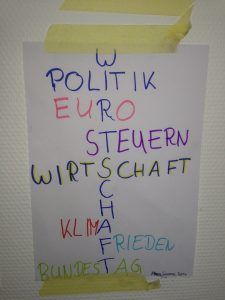 WIRTSCHAFT
POLITIK
EURO
STEUERN
WIRTSCHAFT
KLIMA
FRIEDEN
BUNDESTAG